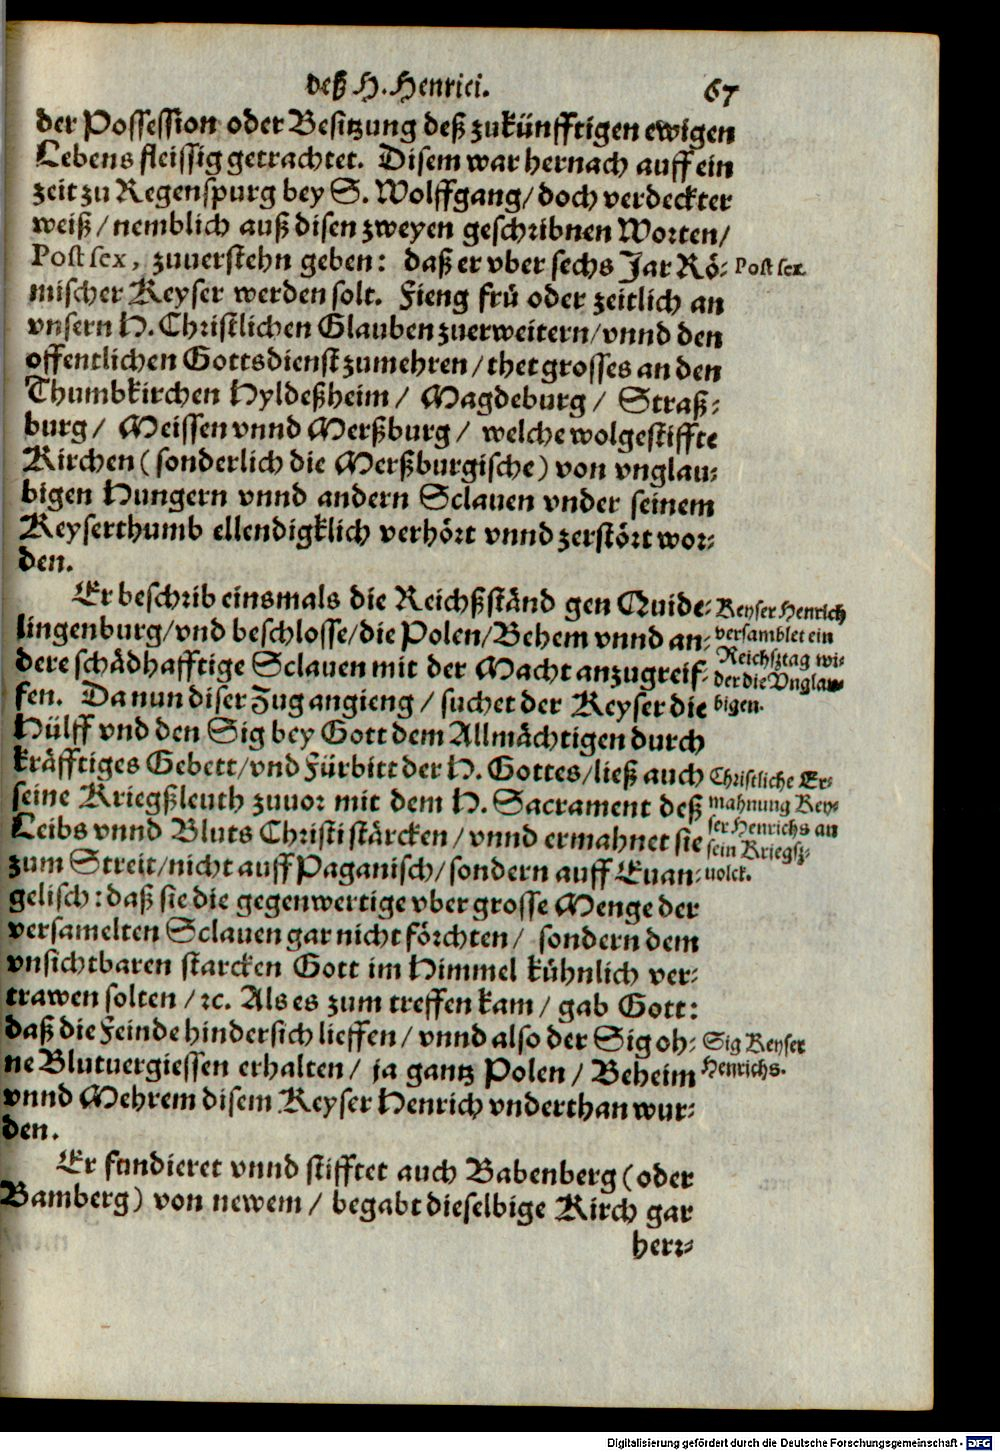 deß H. Henrici. 67
der Possession oder Besitzung deß zukünfftigen ewigen
Lebens fleissig getrachtet. Disem war hernach auff ein
zeit zu Regenspurg bey S. Wolffgang/ doch verdeckter
weiß/ nemblich auß disen zweyen geschribnen Worten/
Post sex, zuuerstehn geben: daß er vber sechs Jar Rö-
Post sex.
mischer Keyser werden solt. Fieng frü oder zeitlich an
vnsern H. Christlichen Glauben zuerweitern/ vnnd den
offentlichen Gottsdienst zumehren/ thet grosses an den
Thumbkirchen Hyldeßheim/ Magdeburg/ Straß-
burg/ Meissen vnnd Merßburg/ welche wolgestiffte
Kirchen (sonderlich die Merßburgische) von vnglau-
bigen Hungern vnnd andern Sclauen vnder seinem
Keyserthumb ellendigklich verhört vnnd zerstört wor-
den.
Er beschrib einsmals die Reichßständ gen Quide-
lingenburg/ vnd beschlosse/ die Polen/ Behem vnnd an-
dere schädhafftige Sclauen mit der Macht anzugreif-
fen. Da nun diser Zug angieng/ suchet der Keyser die
Keyser Henrich
versamblet ein
Reichßtag wi-
der die Vnglau-
bigen.
Hülff vnd den Sig bey Gott dem Allmächtigen durch
kräfftiges Gebett/ vnd Fürbitt der H. Gottes/ ließ auch
seine Kriegßleuth zuuor mit dem H. Sacrament deß
Leibs vnnd Bluts Christi stärcken/ vnnd ermahnet sie
zum Streit/ nicht auff Paganisch/ sondern auff Euan-
Christliche Er-
mahnung Key-
ser Henrichs an
sein Kriegß-
uolck.
gelisch: daß sie die gegenwertige vber grosse Menge der
versamelten Sclauen gar nicht förchten/ sondern dem
vnsichtbaren starcken Gott im Himmel kühnlich ver-
trawen solten/ ꝛc. Als es zum treffen kam/ gab Gott:
daß die Feinde hindersich lieffen/ vnnd also der Sig oh-
ne Blutuergiessen erhalten/ ja gantz Polen/ Beheim
Sig Keyser
Henrichs.
vnnd Mehrem disem Keyser Henrich vnderthan wur-
den.
Er fundieret vnnd stifftet auch Babenberg (oder
Bamberg) von newem/ begabt dieselbige Kirch gar
herr-
Digitalisierung gefördert durch die Deutsche Forschungsgemeinschaft - DFG